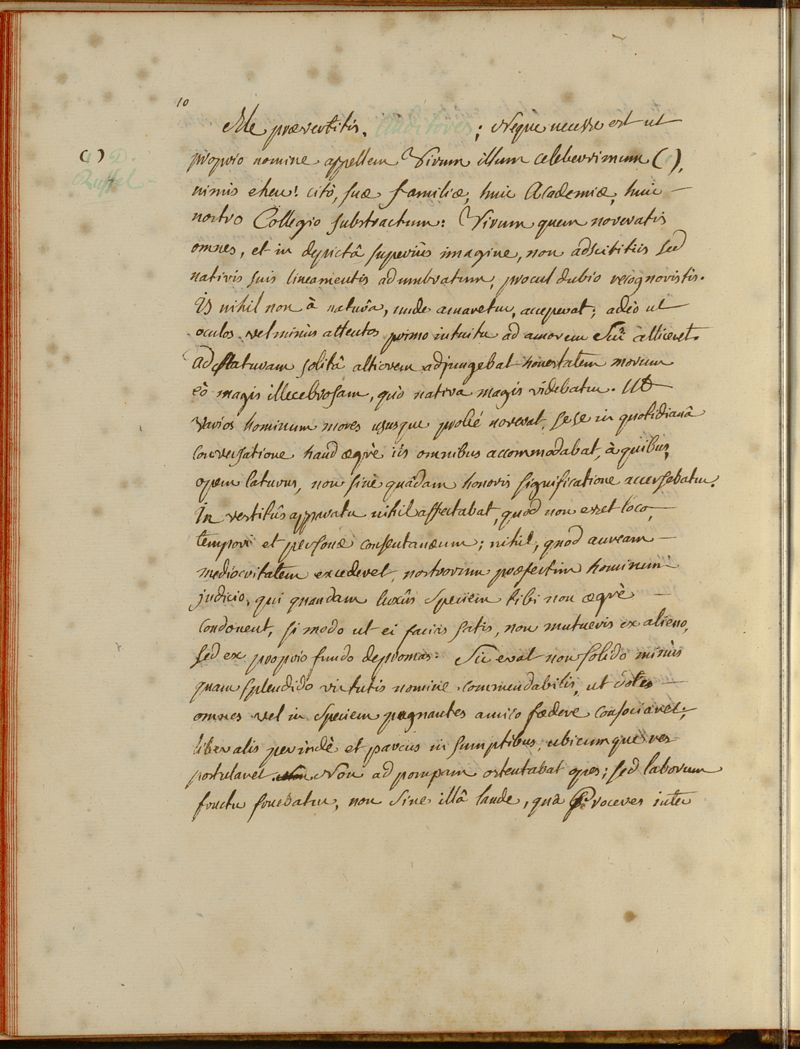 10
Me prævertitis, Auditores; Neque necesse est ut
proprio nomine appellem Virum illum celeberrimum ( ),
( ) D.
nimis eheu! citò, suæ familiæ, huic Academiæ, huic
nostro Collegio substractum: Virum quem noveratis
omnes, et in depictâ superiùs imagine, non adscititiis sed
nativis suis lineamentis adumbratum, procul dubio recognovistis.
Is nihil non à naturâ, unde amaretur, acceperat; adeò ut
oculos vel minùs attentos primo intuitu ad amorem sui alliceret.
Ad staturam solitâ altiorem adjungebat honestatem morum
eò magis illecebrosam, quò nativa magis videbatur. Ut
varios hominum mores ususque probè noverat, sese in quotidianâ
conversatione haud ægrè iis omnibus accommodabat, à quibus,
opem laturus, non sinè quâdam honoris significatione accersebatur.
In vestitûs apparatu nihil affectabat, quod non esset loco,
tempori et personæ consentaneum; nihil, quod auream
mediocritatem excederet, nostrorum præsertim hominum
judicio, qui quamdam luxûs speciem tibi non ægrè
condonent, si modo ut ei facias satis, non mutueris ex alieno,
sed ex proprio fundo depromas. Sic erat non solido minùs
quam splendido virtutis nomine commendabilis, ut dotes
omnes vel in speciem pugnantes amico fædere consociaret;
liberalis perindè et parcus in sumptibus, ubicumque res
postularet. Non ad pompam ostentabat opes; sed laborum
fructu fruebatur, non sine illâ laude, quâ Proceres inter